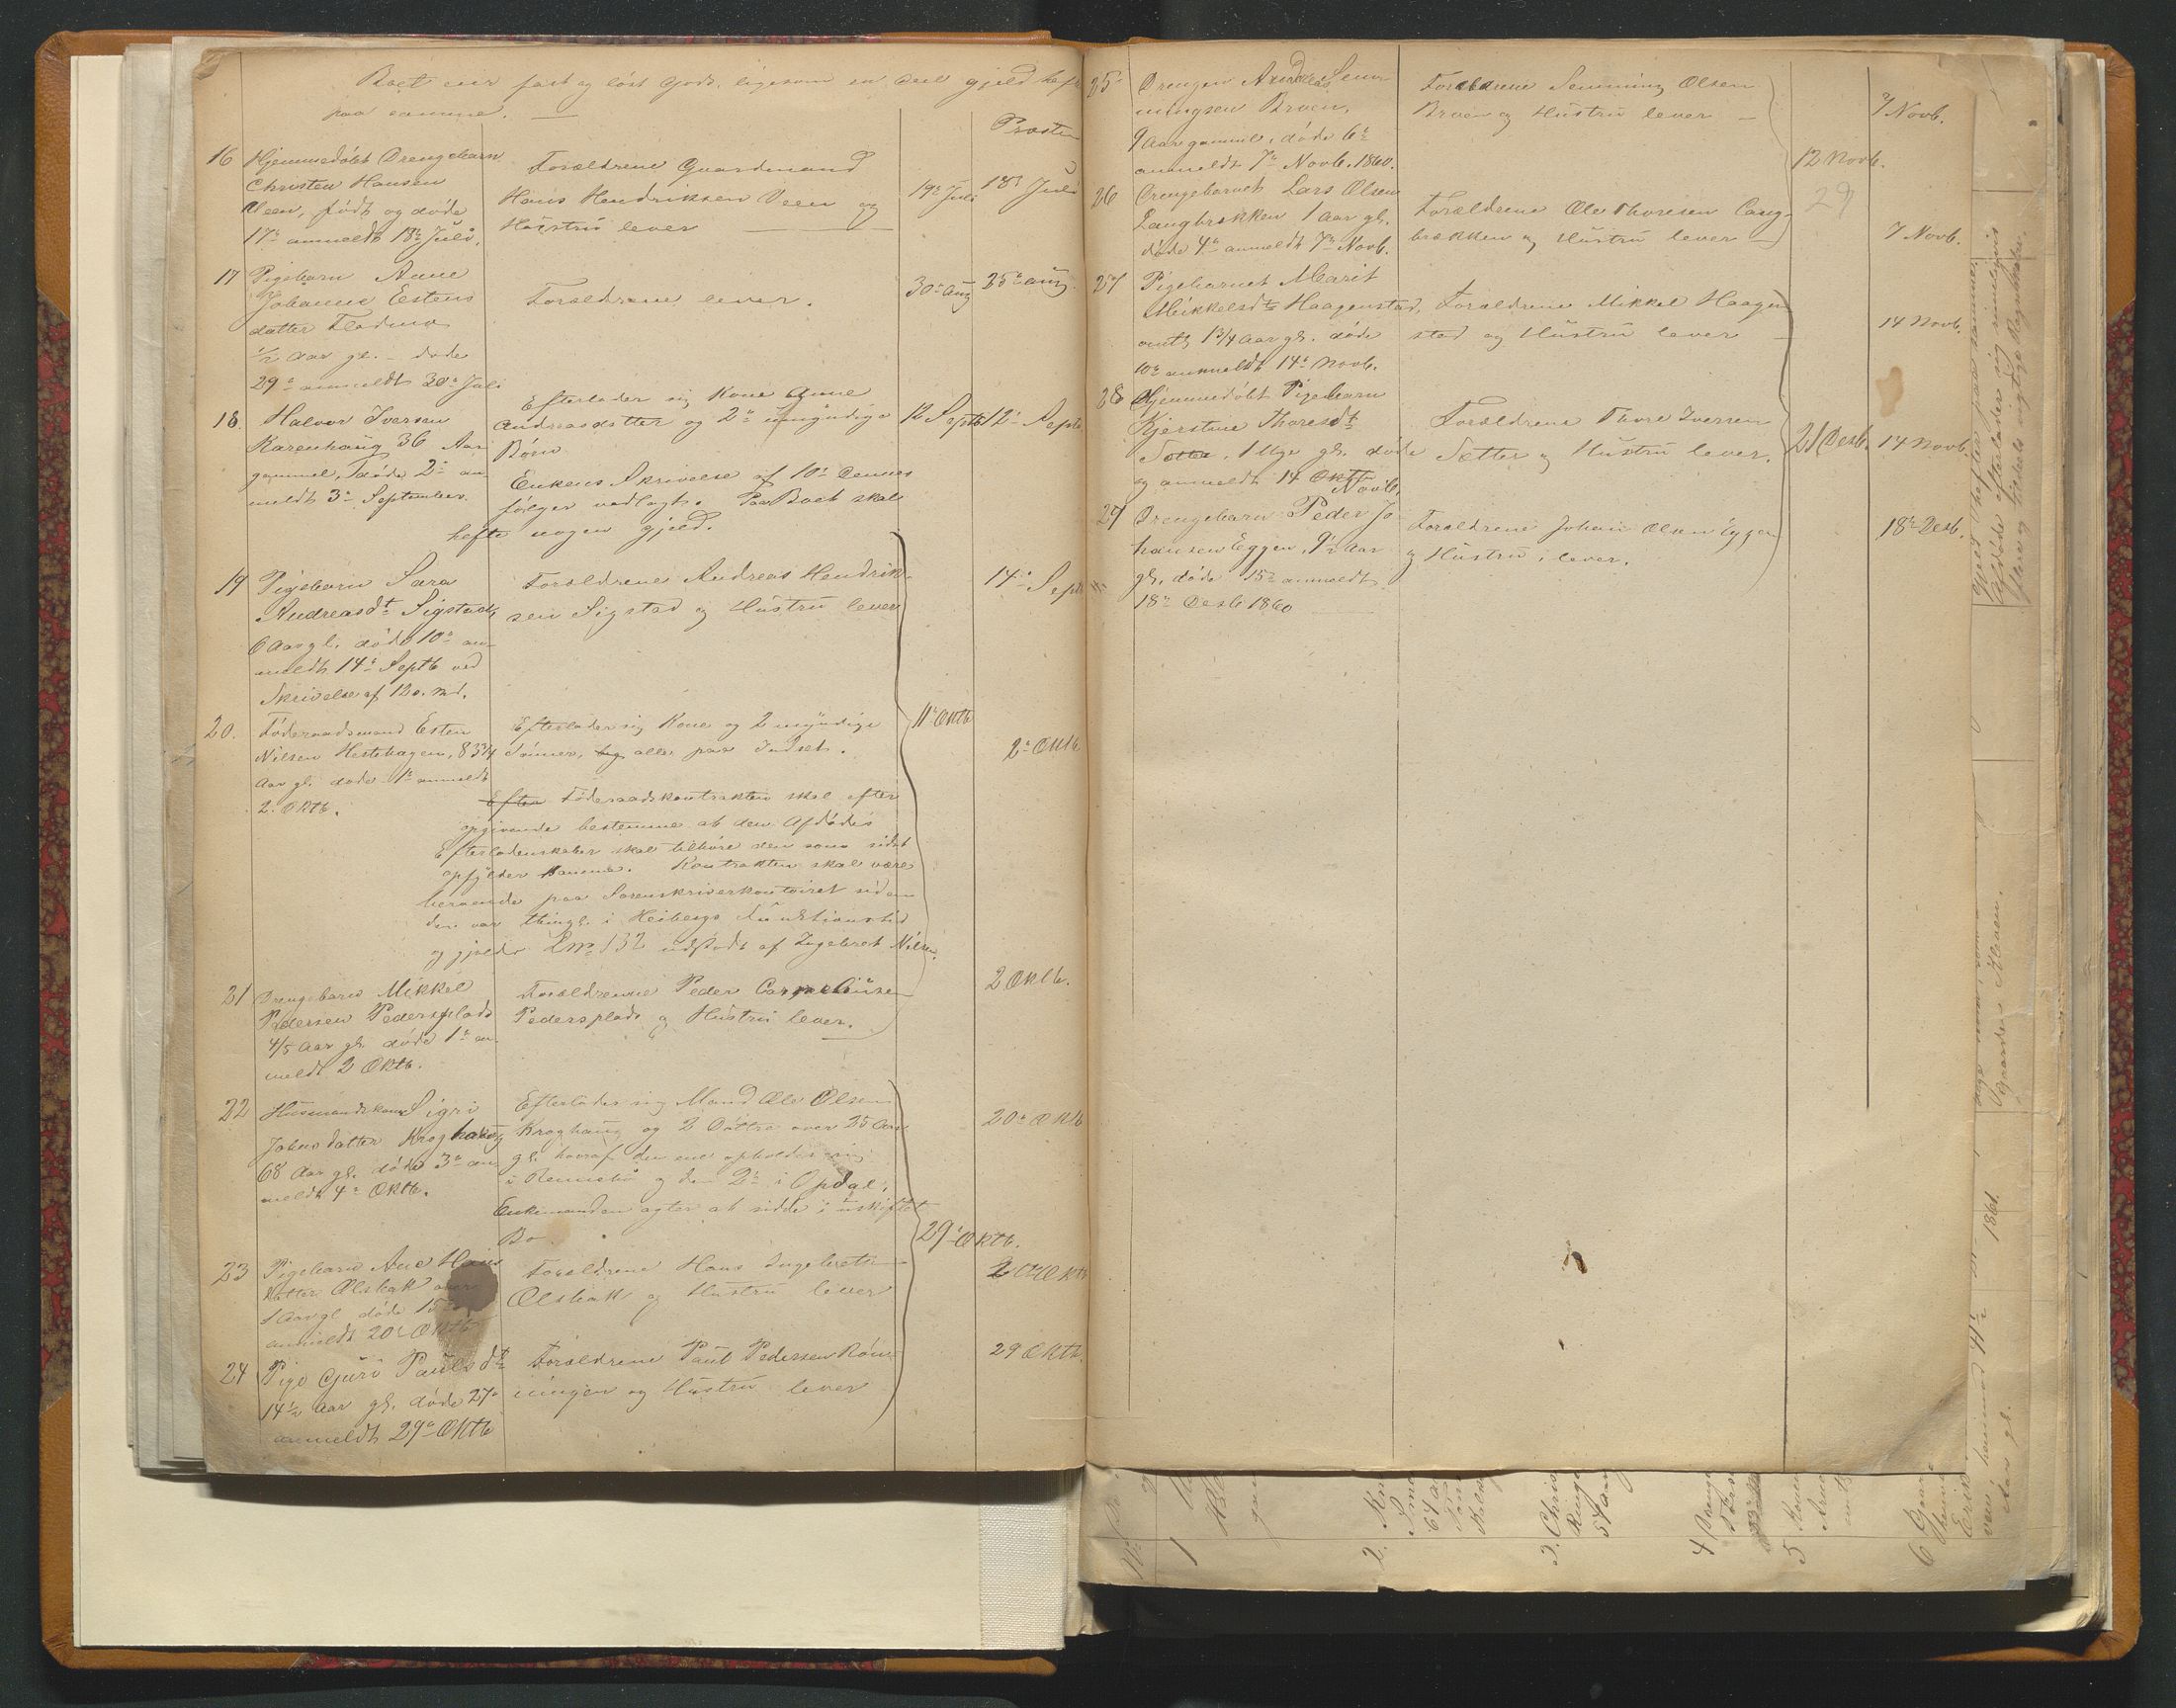 Boet eier fast og löst Gods, ligesom en Deel gjeld hefte
paa samme.
Prosten
16 Hjemmedöbt Drengebarn
Christen Hansen
Veen, födt og döde
17de anmeldt 18de Juli.
Forældrene Gaardmand
Hans Hendriksen Veen og
Hustru lever
19de Juli 18de Juli
17 Pigebarn Anne
Johanne Estens
datter Fladmo
1/2 Aar gl. döde
29de anmeldt 30de Juli
Forældrene lever.
30te Aug 25de Aug.
18. Halvor Iversen
Karenhaug 36 Aar
gammel, döde 2de an-
meldt 3de September.
Efterlader sig Kone Anne
Andreasdatter og 2de umyndige
Börn
Enkens Skrivelse af 10de dennes
fölger vedlagt. Paa Boet skal
hefte nogen gjeld.
12 Septb 12te Septb
19 Pigebarn Sara
Andreasdt Sigstad
6 Aar gl. döde 10de an-
meldt 14de Septb ved
Skrivelse af 12 s. Md.
Forældrene Andreas Hendrik-
sen Sigstad og Hustru lever
14de Septb
20. Föderaadsmand Esten
Nilsen Hestehagen, 83 3/4
Aar gl. döde 1ste anmeldt
2. Oktb.
Efterlader sig Kone og 2 myndige
Sönner, alle paa Indset.
11te Oktb
2de Oktb
Efter Föderaadskontrakten skal efter
opgivende bestemme at den Afdödes
Efterladenskaber skal tilhöre den som sidst
opfylder samme. Kontrakten skal være
beroende paa Sorenskriverkontoiret siden
den var thingl. i Heibergs Funktionstid
og gjelder Lno 132 udstedt af Ingebret Nilsen.
21 Drengebarn Mikkel
Pedersen Pedersplads
4/5 Aar gl. döde 1ste an-
meldt 2 Oktb.
Forældrene Peder Corneliusen
Pedersplads og Hustru lever.
2 Oktb.
22 Husmandskone Sigri
Johnsdatter Kroghaug
68 Aar gl. döde 3de an-
meldt 4de Oktb.
Efterlader sig Mand Ole Olsen
Kroghaug og 2 Döttre over 25 Aar
gl. hvoraf den ene opholder sig
i Rennebu og den 2de i Opdal.
Enkemanden agter at sidde i uskiftet
Bo.
20de Oktb
29de Oktb.
23 Pigebarn Ane Hans
datter Olsbak over
1 Aar gl. döde 15
anmeldt 20de Oktb
Forældrene Hans Ingebretsen
Olsbak og Hustru lever
20de Oktb
24 Pige Guri Paulsdt
14 1/2 Aar gl. döde 27de
anmeldt 29de Oktb
Forældrene Paul Pedersen Rön-
ningen og Hustru lever
29 Oktb.
25 Drengen Andreas Sem-
mingsen Broen,
9 Aar gammel, döde 6te
anmeldt 7de Novb. 1860.
Forældrene Semming Olsen
Broen og Hustru lever
7 Novb.
12 Novb.
29
26 Drengebarnet Lars Olsen
Langbrækken 1 Aar gl.
döde 4de anmeldt 7de Novb.
Forældrene Ole Thoresen Lang-
brækken og Hustru lever
7 Novb.
27 Pigebarnet Marit
Mikkelsdtr Haagenstad,
omtr 1 3/4 Aar gl. döde
10de anmeldt 14de Novb.
Forældrene Mikkel Haagen-
stad og Hustru lever
14 Novb.
28 Hjemmedöbt Pigebarn
Kjerstine Thoresdt
Sætter, 1 Uge gl. döde
og anmeldt 14 Oktb
Novb.
Forældrene Thore Iversen
Sætter og Hustru lever.
21 Desb. 14 Novb.
29 Drengebarn Peder Jo-
hansen Eggen, 9 1/2 Aar
gl. döde 15de anmeldt
18de Desb 1860
Forældrene Johan Olsen Eggen
og Hustru, lever.
18de Desb.
1861